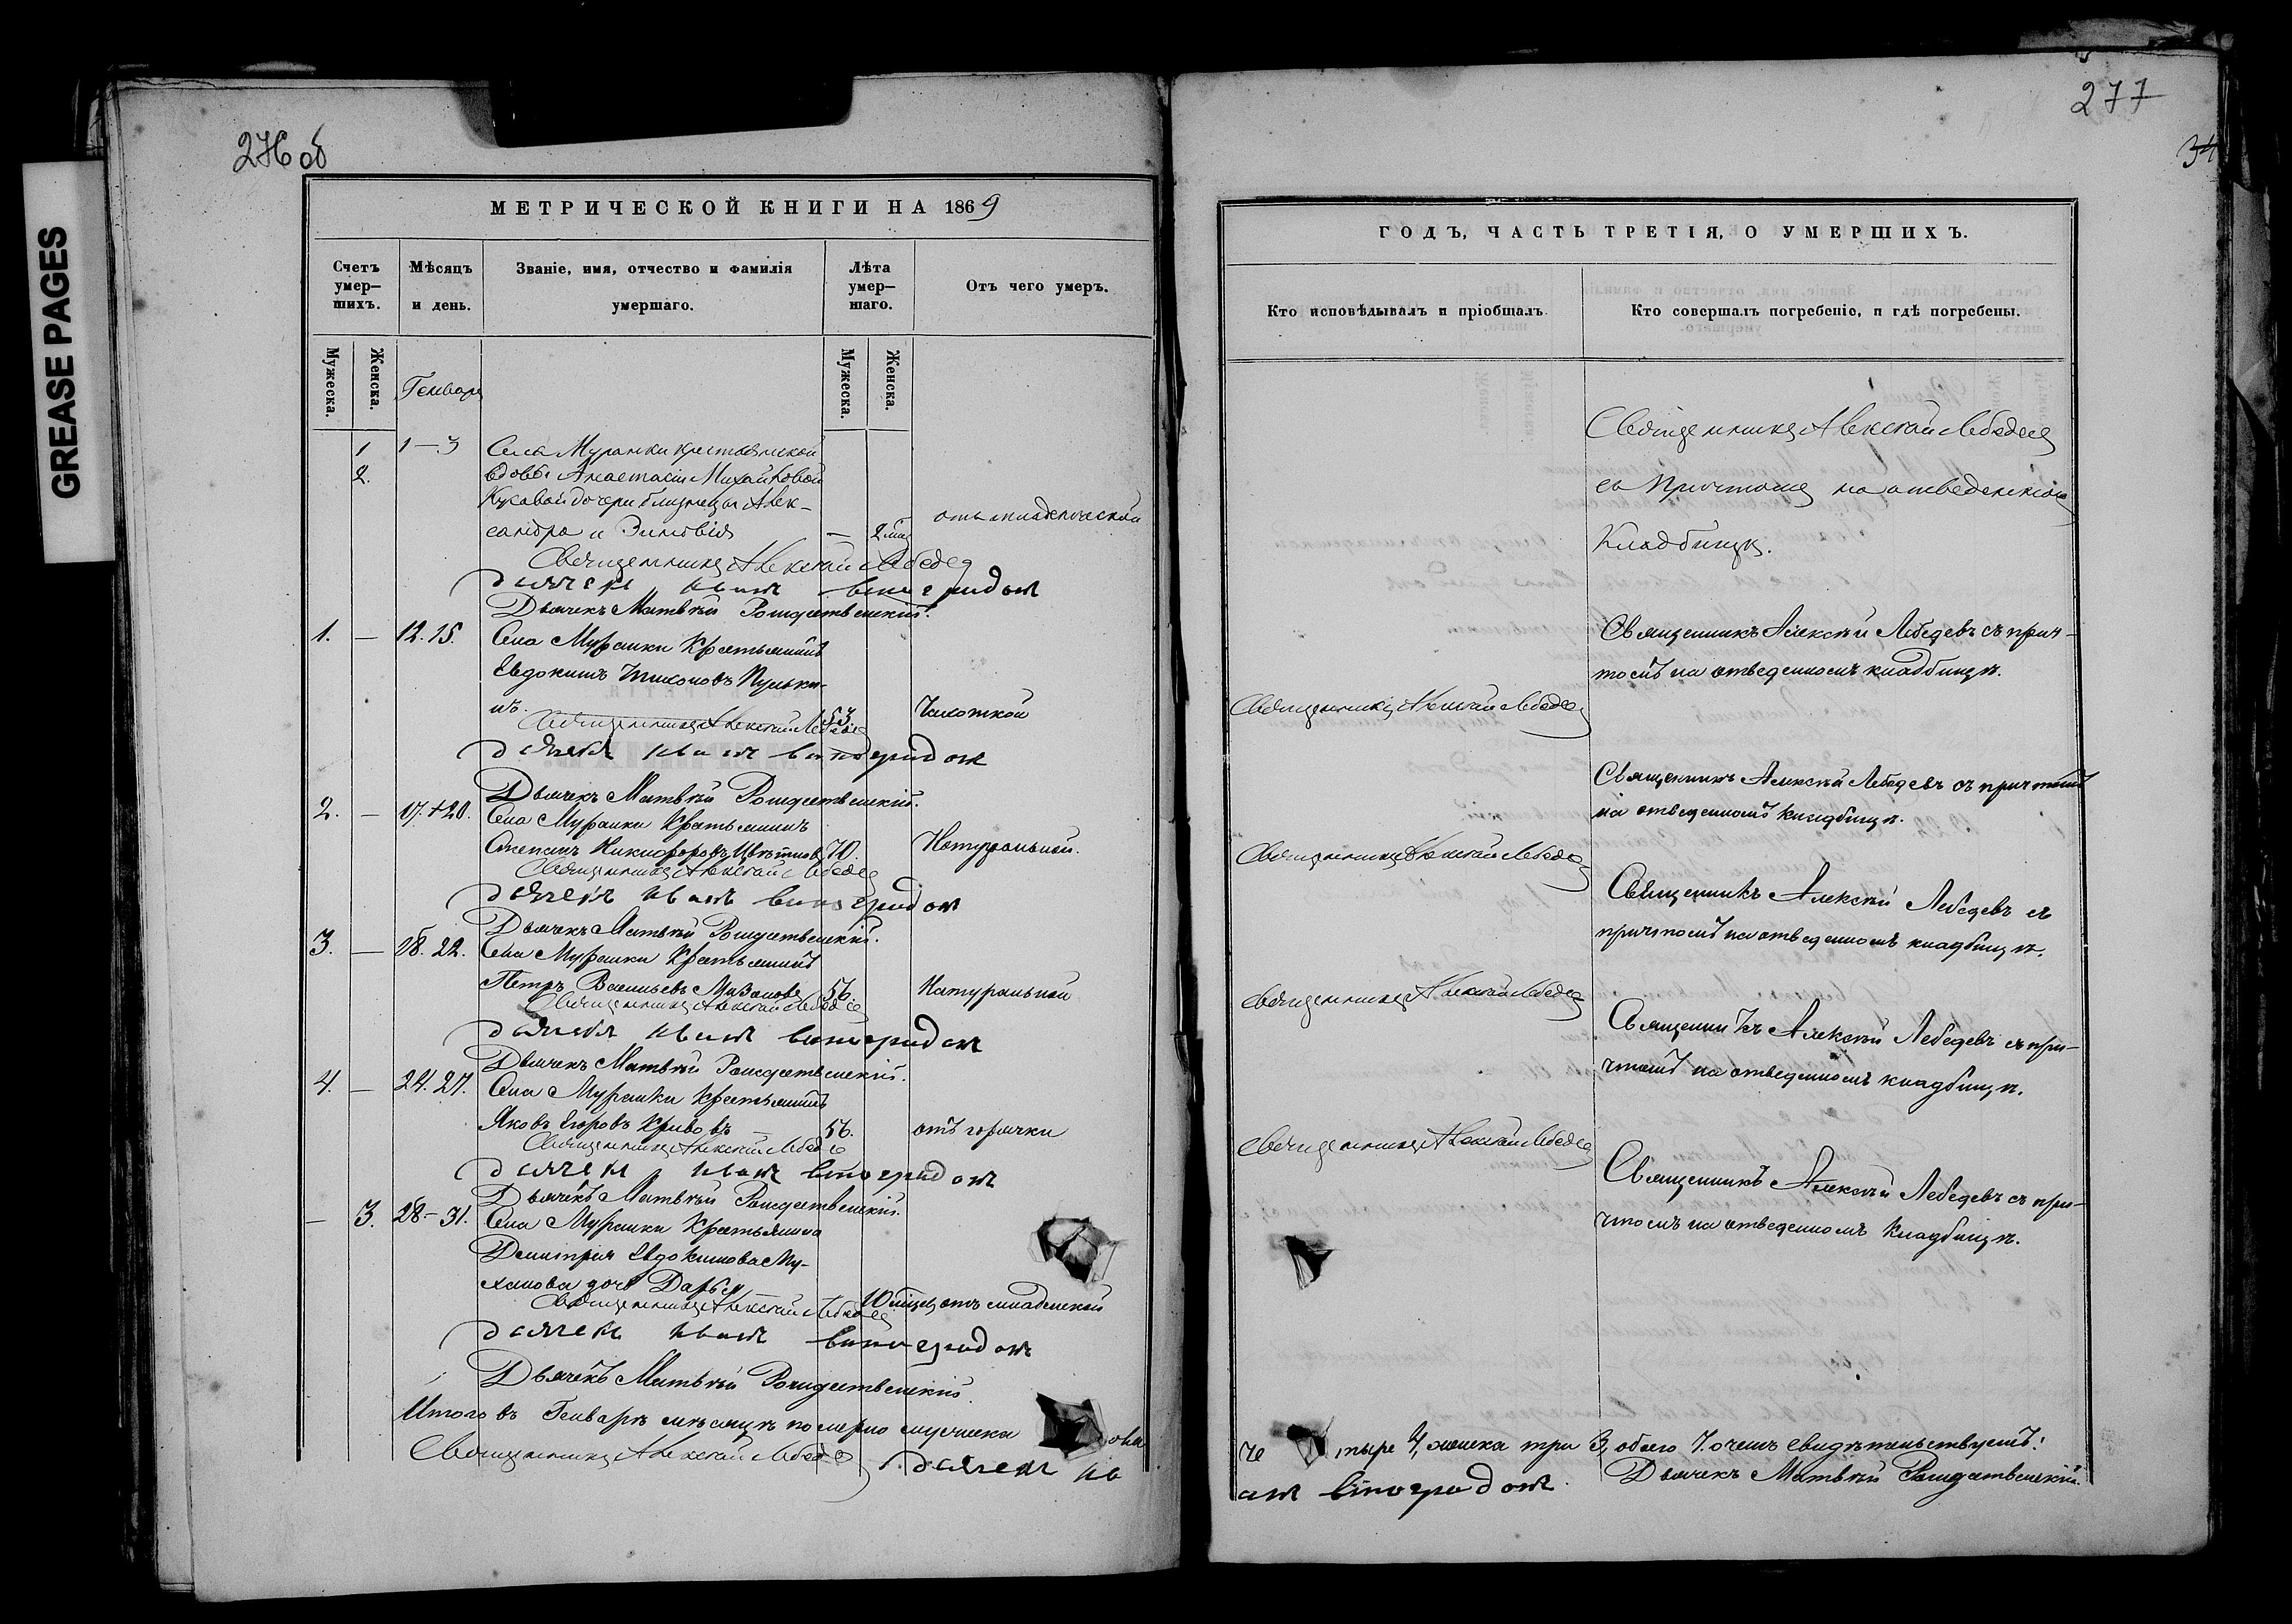 GREASE PAGES
276 об
МЕТРИЧЕСКОЙ КНИГИ НА 1869
Счетъ умер-шихъ.
Мѣсяцъ и день.
Званіе, имя, отчество и фамилія умершаго.
Лѣта умер-шаго.
Отъ чего умеръ.
Мужеска.
Женска.
Мужеска.
Женска.
Генваря
1 1—3 Села Муранки крестьянской
2. вдовы Анастасіи Михайловой
дочери близнецы Алек-
сандра и Зиновія — 2 отъ младенческой
Священникъ Алексѣй Лебедев
дьячекъ Иванъ Виноградов
Дьячекъ Матвѣй Рождественскій.
1. — 12. 15. Села Муранки Крестьянинъ
Евдокимъ Тихоновъ Пульки-
нъ. 53. Чахоткой
Священникъ Алексѣй Лебедев
дьячекъ Иванъ Виноградов
Дьячекъ Матвѣй Рождественскій.
2. — 17.+20. Села Муранки Крестьянинъ
Никифоровъ 70. Натуральной.
Священникъ Алексѣй Лебедев
дьячекъ Иванъ Виноградов
Дьячекъ Матвѣй Рождественскій.
3. — 18. 22. Села Муранки Крестьянинъ
Петръ Васильевъ 56. Натуральной
Священникъ Алексѣй Лебедев
дьячекъ Иванъ Виноградов
Дьячекъ Матвѣй Рождественскій.
4. — 24. 27. Села Муранки Крестьянинъ
Яковъ Егоровъ Кривовъ 56. отъ горячки
Священникъ Алексѣй Лебедев
дьячекъ Иванъ Виноградов
Дьячекъ Матвѣй Рождественскій.
— 3. 28—31. Села Муранки Крестьянина
Димитрія Евдокимова Му-
ханова дочь Дарья
10 отъ младенской
Священникъ Алексѣй Лебедев
дьячекъ Иванъ Виноградов
Дьячекъ Матвѣй Рождественскій
Итого въ Генварѣ мѣсяцѣ померло мужеска пола
Священникъ Алексѣй Лебедев дьячекъ Ив
277
34
ГОДЪ, ЧАСТЬ ТРЕТІЯ, О УМЕРШИХЪ.
Кто исповѣдывалъ и пріобщалъ.
Кто совершалъ погребеніе, и гдѣ погребены.
Священникъ Алексѣй Лебедев
съ Причтомъ на отведенномъ
Кладбищѣ.
Священникъ Алексѣй Лебедевъ съ прич-
томъ на отведенномъ кладбищѣ.
Священникъ Алексѣй Лебедев
Священникъ Алексѣй Лебедевъ съ причтомъ
на отведенномъ кладбищѣ.
Священникъ Алексѣй Лебедев
Священникъ Алексѣй Лебедевъ съ
причтомъ на отведенномъ кладбищѣ.
Священникъ Алексѣй Лебедев
Священникъ Алексѣй Лебедевъ съ при-
чтомъ на отведенномъ кладбищѣ.
Священникъ Алексѣй Лебедев
Священникъ Алексѣй Лебедевъ съ при-
чтомъ на отведенномъ кладбищѣ.
че тыре 4, женска три 3, обоего 7. о чемъ свидѣтельствуемъ:
анъ Виноградовъ. Дьячекъ Матвѣй Рождественскій.